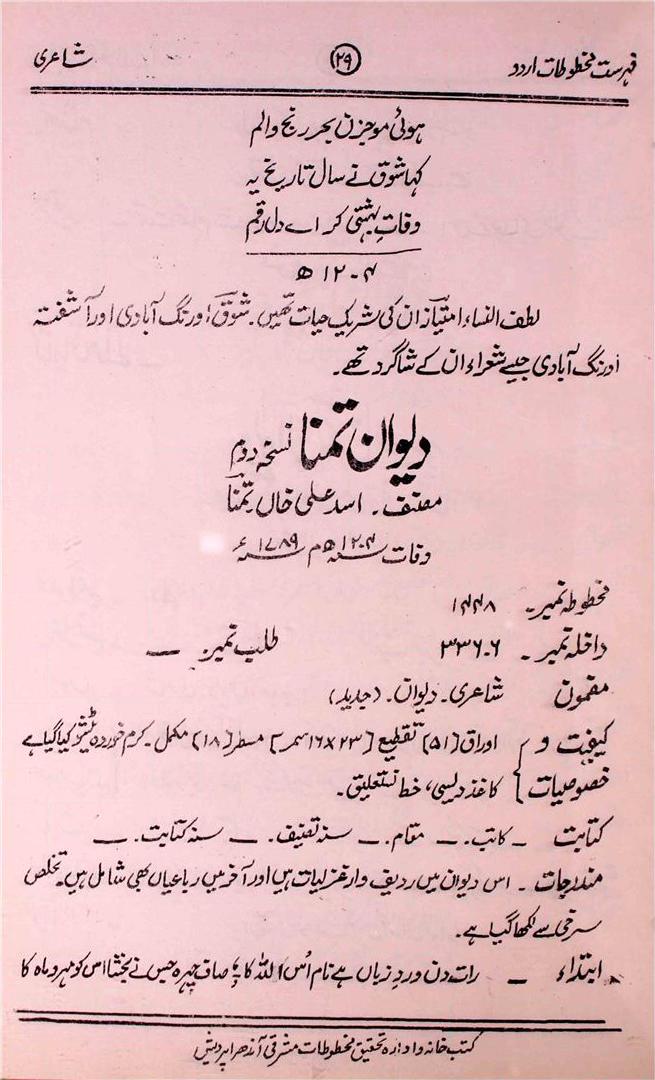 فہرست مخطوطات اردو ۲۹ شاعری
ہوئی موجزن بحر رنج و الم
کہا شوق نے سال تاریخ یہ
وفات بہشتی کر اے دل رقم
۱۲۰۴ھ
لطف النساء امتیاز ان کی شریک حیات تھیں۔ شوق اورنگ آبادی اور آشفتہ
اورنگ آبادی جیسے شعراء ان کے شاگرد تھے۔
دیوان تمنا نسخہ دوم
مصنف۔ اسد علی خاں تمنا
وفات سنہ ۱۲۰۴ھ م سنہ ۱۷۸۹ء
مخطوطہ نمبر۔ ۱۴۴۸
داخلہ نمبر۔ ۳۳۶۰۶ طلب نمبر۔ —
مضمون شاعری۔ دیوان۔ (جدید)
کیفیت و اوراق (۵۱) تقطیع [۲۳×۱۶سمر] مسطر (۱۸) مکمل۔ کرم خوردہ ٹیشو کیا گیا ہے
خصوصیات کاغذ دیسی، خط نستعلیق۔
کتابت – کاتب۔ — مقام۔ — سنہ تصنیف۔ — سنہ کتابت۔ —
مندرجات۔ اس دیوان میں ردیف وار غزلیات ہیں اور آخر میں رباعیاں بھی شامل ہیں۔ تخلص
سرخی سے لکھا گیا ہے۔
ابتداء – رات دن ورد زباں ہے نام اُس اللہ کا صاف چہرہ جس نے بخشا اس کو مہر و ماہ کا
کتب خانہ و ادارہ تحقیق مخطوطات مشرقی آندھرا پردیش